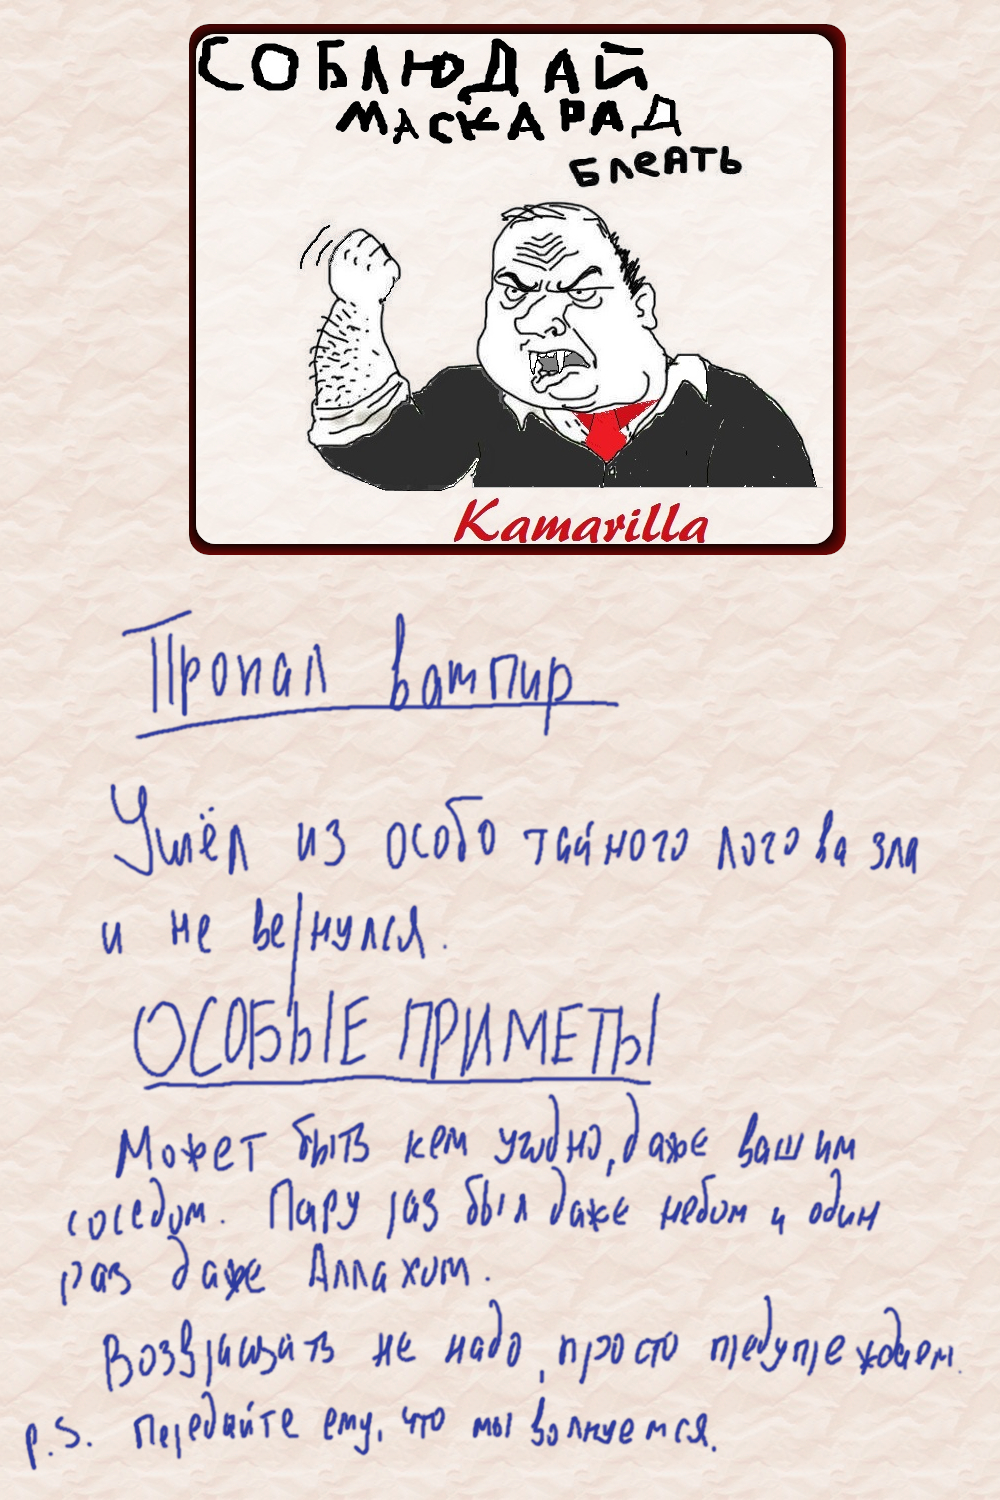 СОБЛЮДАЙ
МАСКАРАД
БЛЕАТЬ
Kamarilla
Пропал вампир
Ушёл из особо тайного логова зла
и не вернулся.
ОСОБЫЕ ПРИМЕТЫ
Может быть кем угодно, даже вашим
соседом. Пару раз был даже небом и один
раз даже Аллахом.
Возвращать не надо, просто предупреждаем.
P.S. Передайте ему, что мы волнуемся.